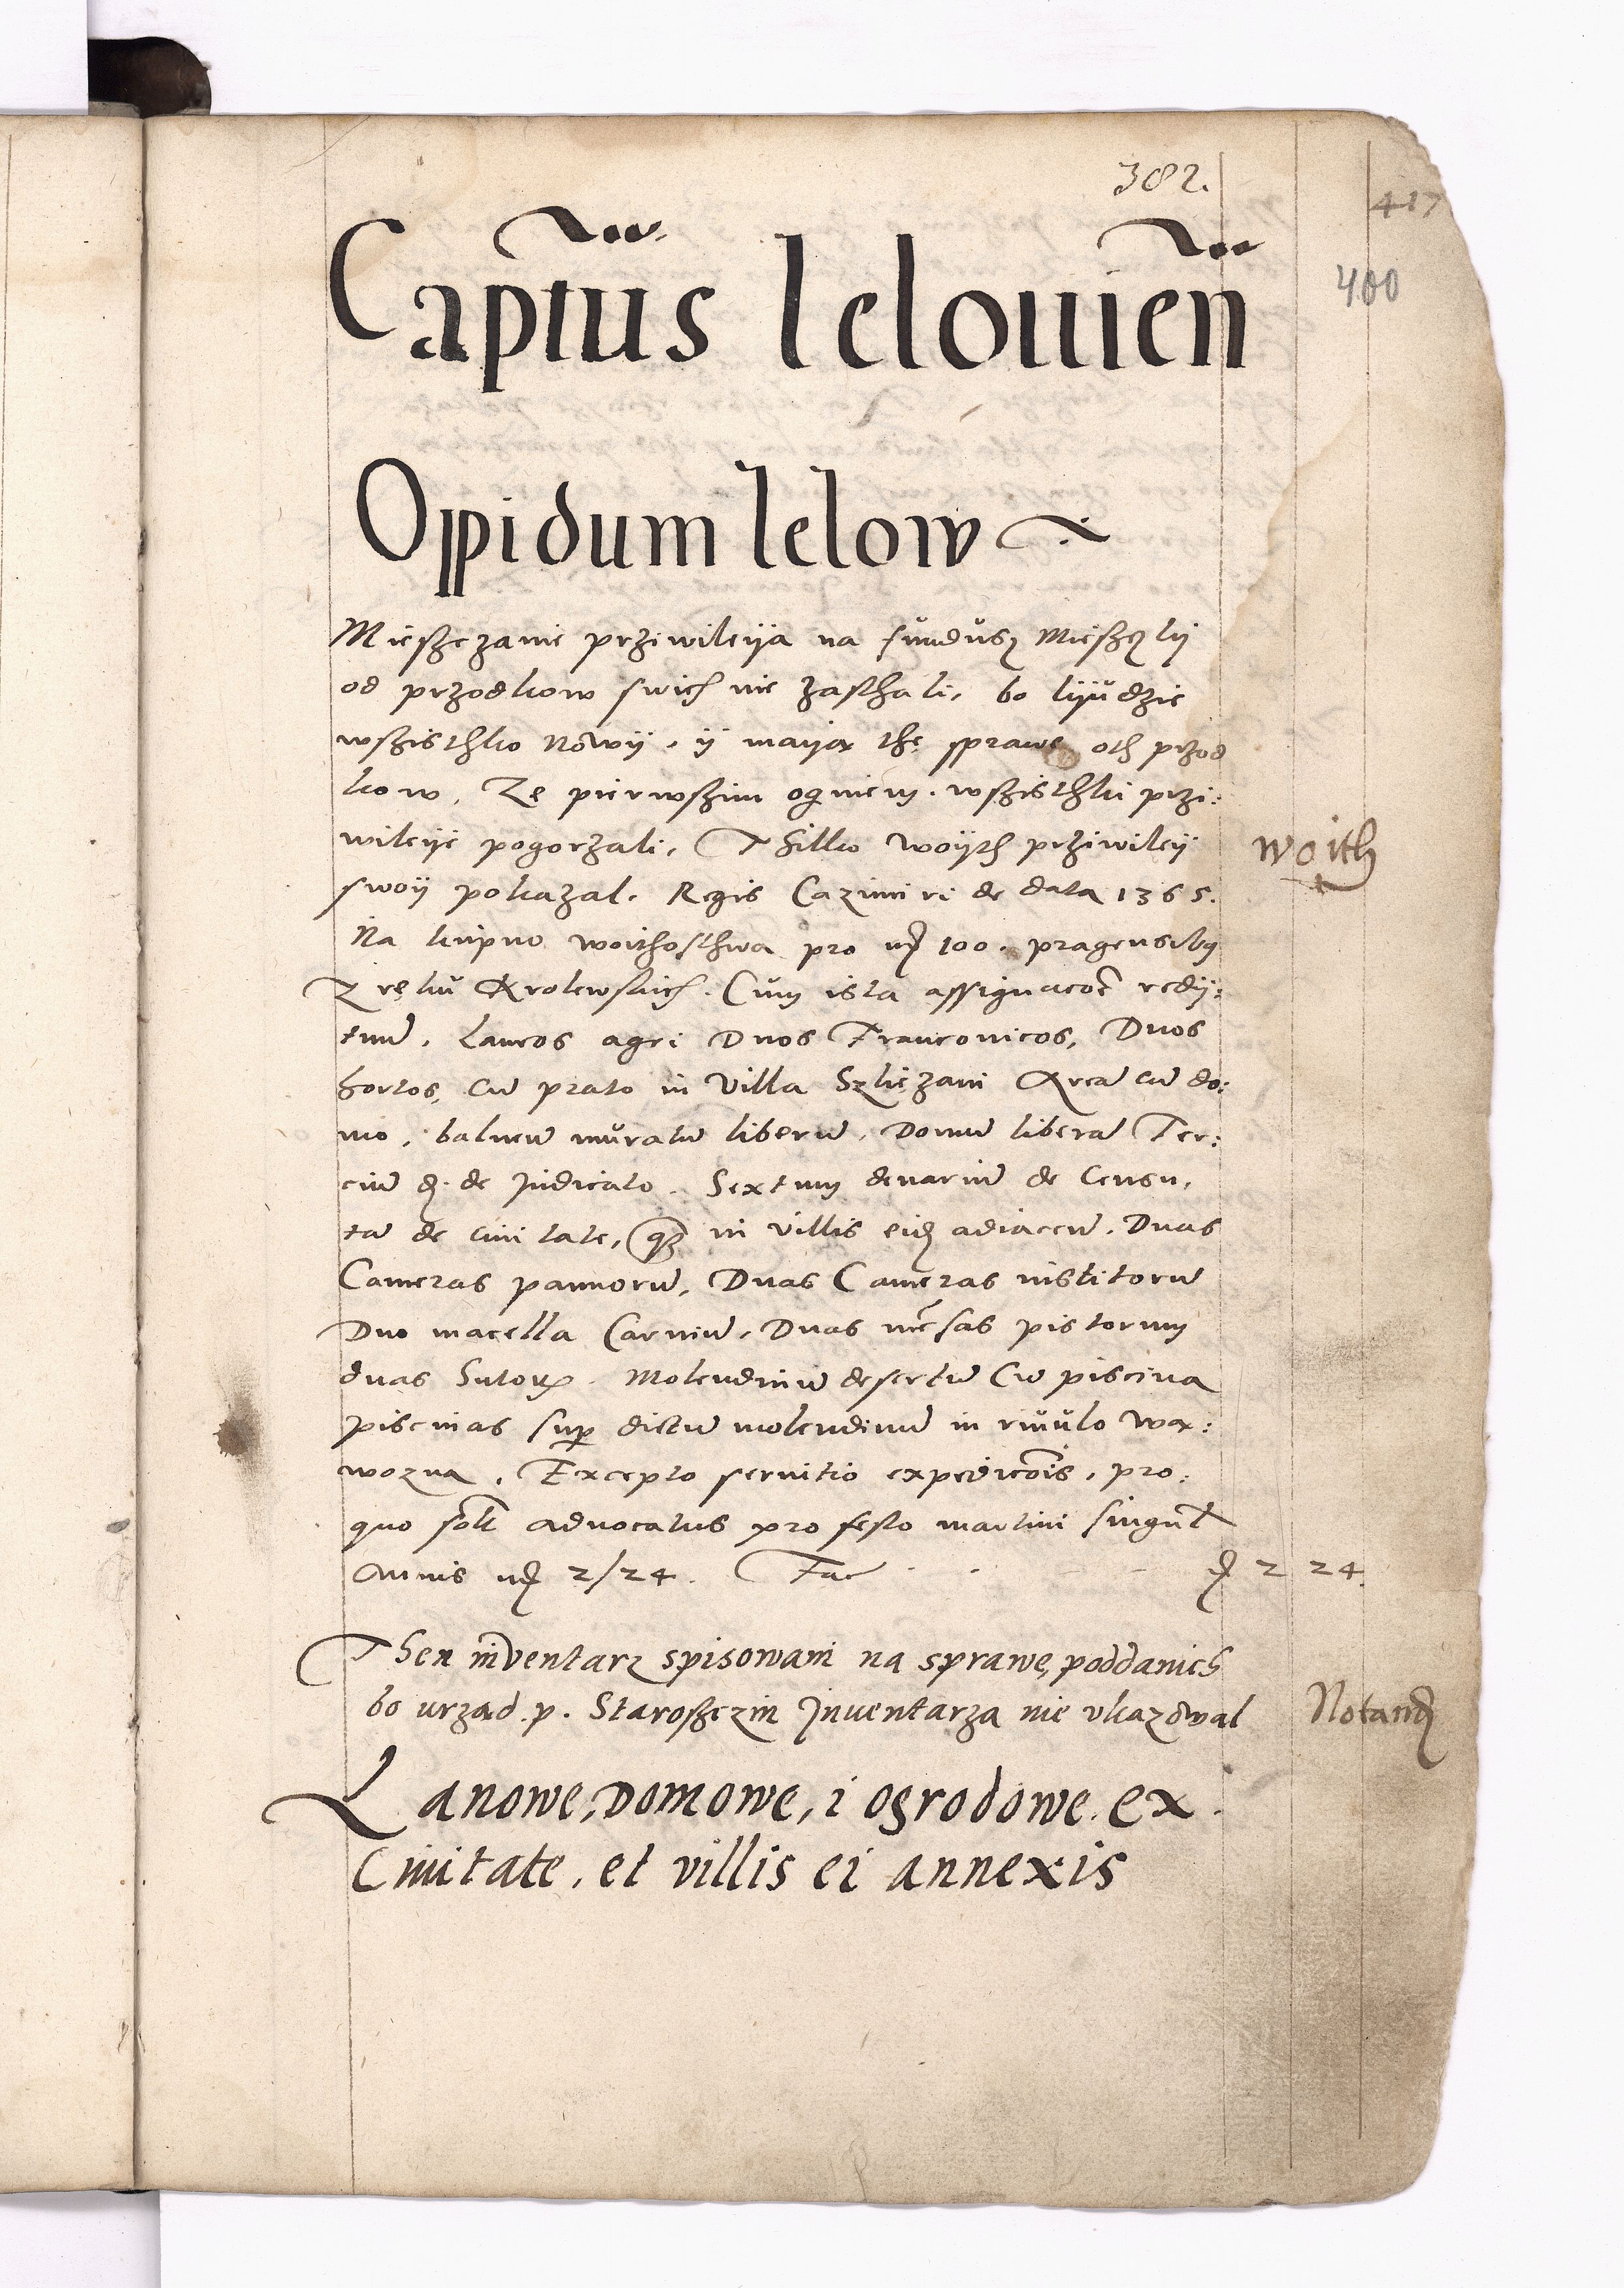 382.
417
400
Captūs lelouien̄
Oppidum lelow
Mieszczanie przivileija na fundusz Mieszkij
od przodkow swich nie zasthali, bo lijudzie
wszisthko nowij, ij maija the sprawe oth przod
kow, Ze pierwszim ogniem wszisthki przi:
wileije pogorzali, Thilko woijth przivileij
swoij pokazal. Regis Cazimiri de data 1365.
Na kupno woithosthwa pro 100. pragensibus
Z reku Krolewskich. Cum ista assignacõe redij:
tuū, Laneos agri Duos Franconicos, Duos
hortos, cū prato in Villa Szliczani Areā cū do:
mo, balneū muratū liberū, Domū liberā Ter:
ciū đ. de Judicato. Sextum denariū de Censu,
tā de ciuitate, qz in villis eid adiacen̄. Duas
Cameras pannorū, Duas Cameras institorū
Duo macella Carniū, Duas mēsas pistorum
duas Sutorꝝ. Molendinū desertū Cū piscina
piscinas sup dictū molendinū in riuulo wa:
wozna, Excepto seruitio expedicõis, pro:
quo solt aduocatus pro festo martini singul
Annis 2/24. Fac 2 24.
Then inventarz spisowani na sprawe poddanich
bo urzad p. Staroszczin Inuentarza nie ukazowal
Lanowe, Domowe, i ogrodowe. ex
Ciuitate, et villis ei annexis
woith
Notand